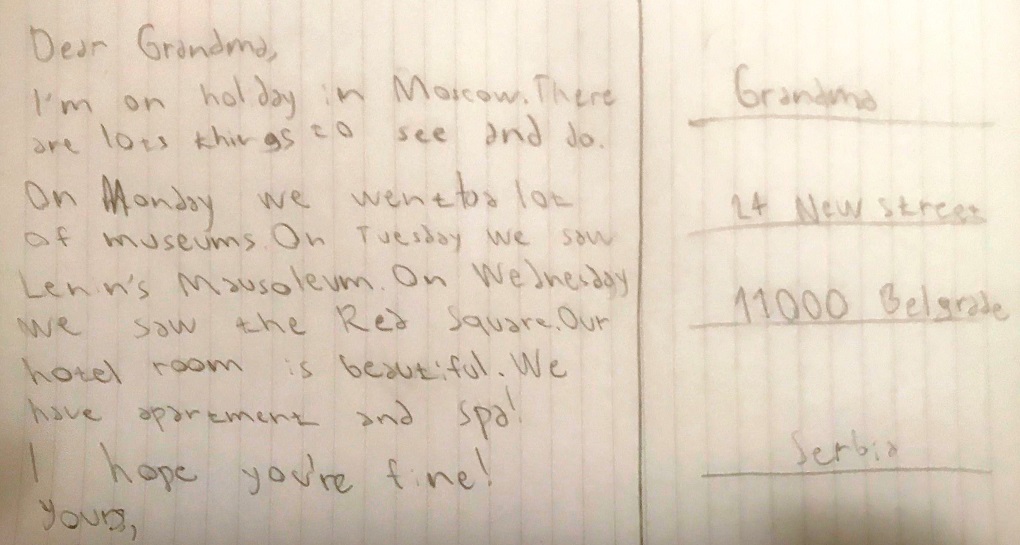 Dear Grandma,
I'm on holday in Moscow. There
are lots things to see and do.
On Monday we went to a lot
of museums. On Tuesday we saw
Lenin's Mausoleum. On Wednesday
we saw the Red Square. Our
hotel room is beautiful. We
have apartment and spa!
I hope you're fine!
Yours,
Grandma
24 New street
11000 Belgrade
Serbia